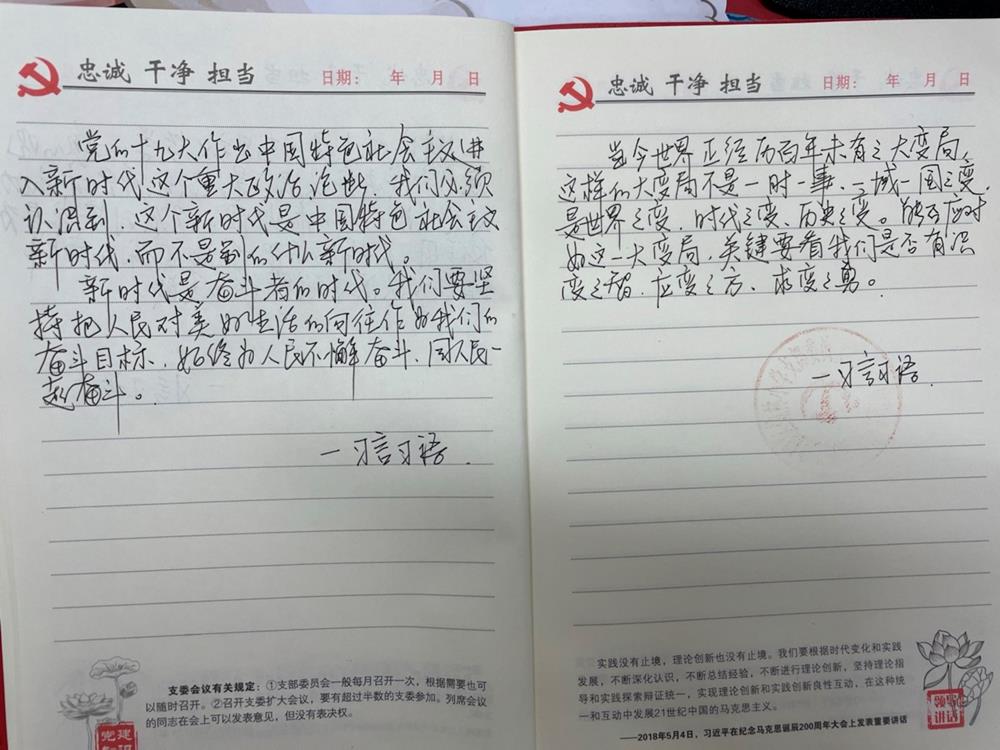 忠诚 干净 担当 日期： 年 月 日
党的十九大作出中国特色社会主义进
入新时代这个重大政治论断，我们必须
认识到，这个新时代是中国特色社会主义
新时代，而不是别的什么新时代。
新时代是奋斗者的时代。我们要坚
持把人民对美好生活的向往作为我们的
奋斗目标，始终为人民不懈奋斗，同人民一
起奋斗。
—习言习语
支委会议有关规定：①支部委员会一般每月召开一次，根据需要也可
以随时召开。②召开支委扩大会议，要有超过半数的支委参加。列席会议
的同志在会上可以发表意见，但没有表决权。
党建
知识
忠诚 干净 担当 日期： 年 月 日
当今世界正经历百年未有之大变局，
这样的大变局不是一时一事、一域一国之变，
是世界之变、时代之变、历史之变。能否应对
好这一大变局，关键要看我们是否有识
变之智、应变之方、求变之勇。
—习言习语
实践没有止境，理论创新也没有止境。我们要根据时代变化和实践
发展，不断深化认识，不断总结经验，不断进行理论创新，坚持理论指
导和实践探索辩证统一，实现理论创新和实践创新良性互动，在这种统
一和互动中发展21世纪中国的马克思主义。
——2018年5月4日，习近平在纪念马克思诞辰200周年大会上发表重要讲话
领袖
讲话